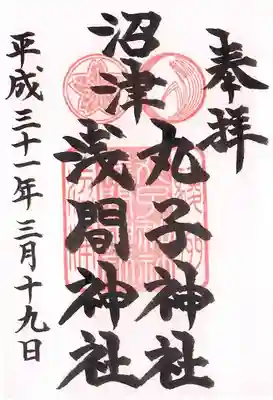 奉拝
沼津
丸子神社
浅間神社
平成三十一年三月十九日